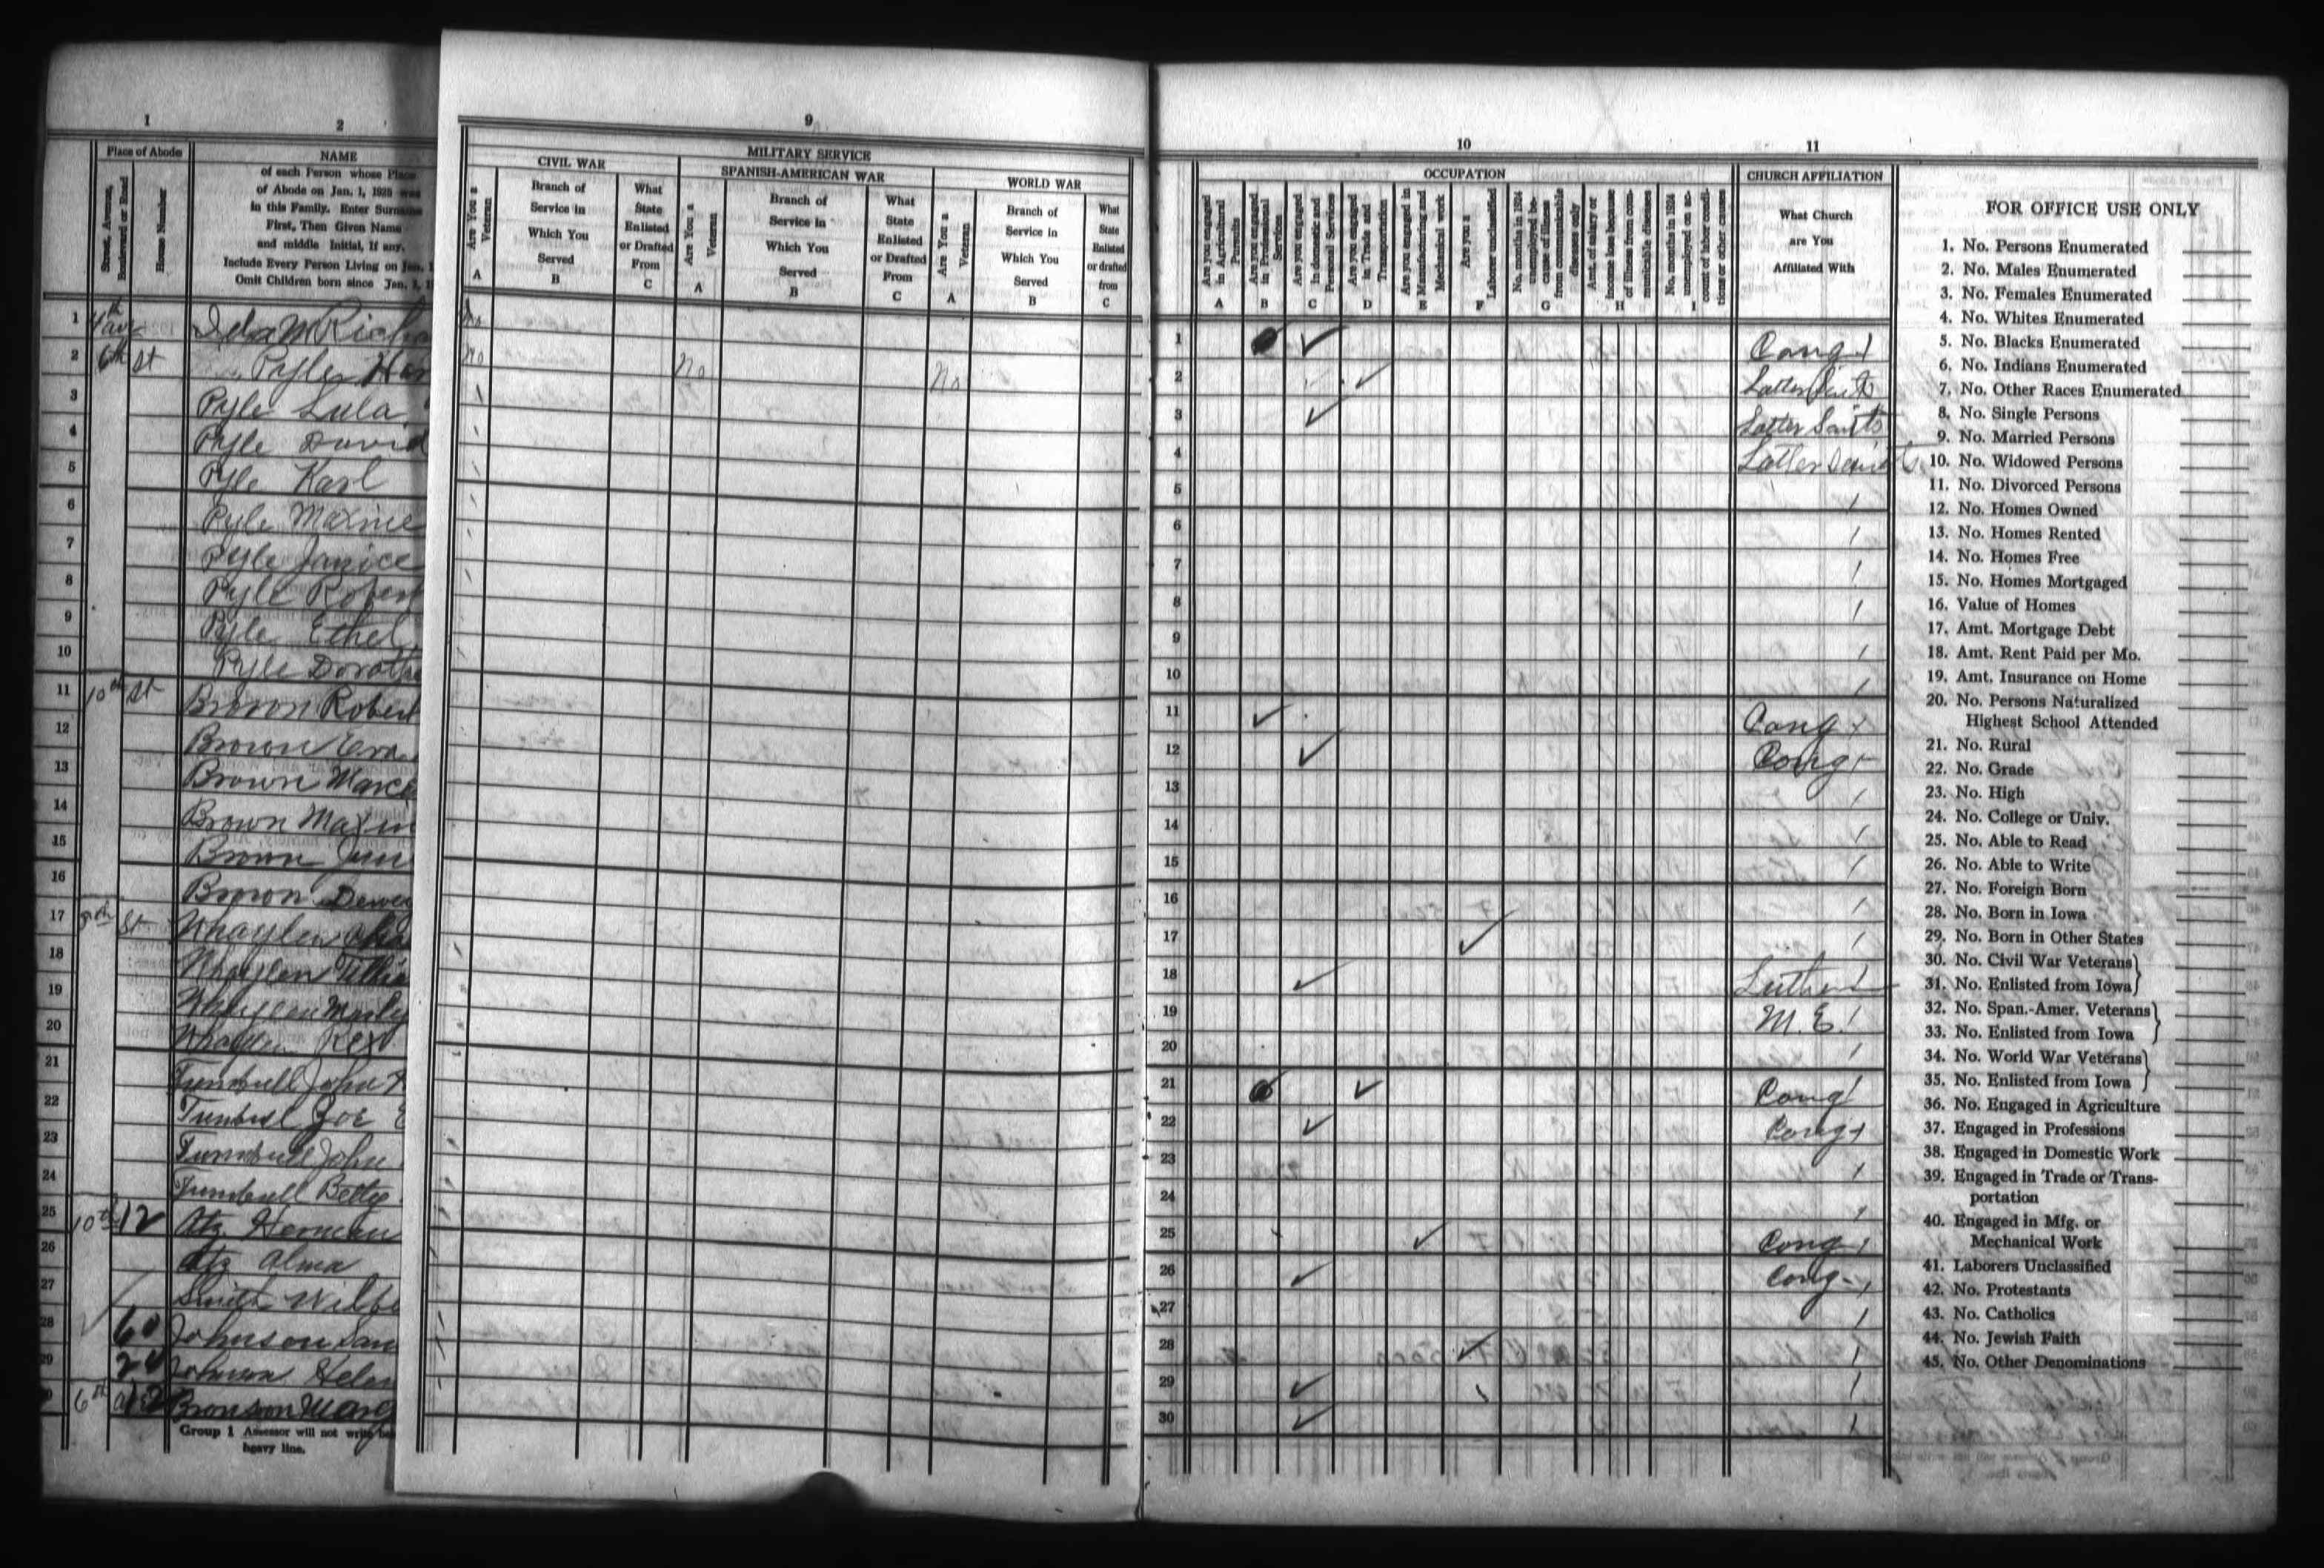 1
2
Place of Abode
Street, Avenue,
Boulevard or Road
House Number
NAME
of each Person whose Place
of Abode on Jan. 1, 1925 was
in this Family. Enter Surname
First, Then Given Name
and middle Initial, if any.
Include Every Person Living on Jan. 1
Omit Children born since Jan. 1, 1
1 4th av Ida M Richa
2 6th St Pyle Har
3 Pyle Lula
4 Pyle David
5 Pyle Karl
6 Pyle Maxine
7 Pyle Janice
8 Pyle Robert
9 Pyle Ethel
10 Pyle Doroth
11 10th St Brown Robert
12 Brown Eva
13 Brown Marce
14 Brown Maxin
15 Brown June
16 Brown Dewey
17 8th St Whaylen Cha
18 Whaylen Tillie
19 Whaylen Marly
20 Whaylen Rex
21 Turnbull John
22 Turnbull Zoe E
23 Turnbull John
24 Turnbull Betty
25 10th 12 Atz Herman
26 Atz Alma
27 Smith Wilb
28 60 Johnson Sam
29 24 Johnson Helen
6th Bronson Marg
Group 1 Assessor will not write be
heavy line.
9
MILITARY SERVICE
CIVIL WAR
SPANISH-AMERICAN WAR
WORLD WAR
Are You a
Veteran
A
Branch of
Service in
Which You
Served
B
What
State
Enlisted
or Drafted
From
C
Are You a
Veteran
A
Branch of
Service in
Which You
Served
B
What
State
Enlisted
or Drafted
From
C
Are You a
Veteran
A
Branch of
Service in
Which You
Served
B
What
State
Enlisted
or drafted
from
C
No
No No No
10
OCCUPATION
Are you engaged
in Agricultural
Pursuits
A
Are you engaged
in Professional
Services
B
Are you engaged
in domestic and
Personal Services
C
Are you engaged
in Trade and
Transportation
D
Are you engaged in
Manufacturing and
Mechanical work
E
Are you a
Laborer unclassified
F
No. months in 1924
unemployed be-
cause of illness
from communicable
diseases only
G
Amt. of salary or
income loss because
of illness from com-
municable diseases
H
No. months in 1924
unemployed on ac-
count of labor condi-
tions or other causes
I
11
CHURCH AFFILIATION
What Church
are You
Affiliated With
1 ✓ Cong
2 ✓ Latter Saints
3 ✓ Latter Saints
4 Latter Saints
5
6
7
8
9
10
11 ✓ Cong
12 ✓ Cong
13
14
15
16
17 ✓
18 ✓ Luthern
19 M. E.
20
21 ✓ Cong
22 ✓ Cong
23
24
25 ✓ Cong
26 ✓ Cong
27
28 ✓
29 ✓
30 ✓
FOR OFFICE USE ONLY
1. No. Persons Enumerated
2. No. Males Enumerated
3. No. Females Enumerated
4. No. Whites Enumerated
5. No. Blacks Enumerated
6. No. Indians Enumerated
7. No. Other Races Enumerated
8. No. Single Persons
9. No. Married Persons
10. No. Widowed Persons
11. No. Divorced Persons
12. No. Homes Owned
13. No. Homes Rented
14. No. Homes Free
15. No. Homes Mortgaged
16. Value of Homes
17. Amt. Mortgage Debt
18. Amt. Rent Paid per Mo.
19. Amt. Insurance on Home
20. No. Persons Naturalized
Highest School Attended
21. No. Rural
22. No. Grade
23. No. High
24. No. College or Univ.
25. No. Able to Read
26. No. Able to Write
27. No. Foreign Born
28. No. Born in Iowa
29. No. Born in Other States
30. No. Civil War Veterans
31. No. Enlisted from Iowa
32. No. Span.-Amer. Veterans
33. No. Enlisted from Iowa
34. No. World War Veterans
35. No. Enlisted from Iowa
36. No. Engaged in Agriculture
37. Engaged in Professions
38. Engaged in Domestic Work
39. Engaged in Trade or Trans-
portation
40. Engaged in Mfg. or
Mechanical Work
41. Laborers Unclassified
42. No. Protestants
43. No. Catholics
44. No. Jewish Faith
45. No. Other Denominations